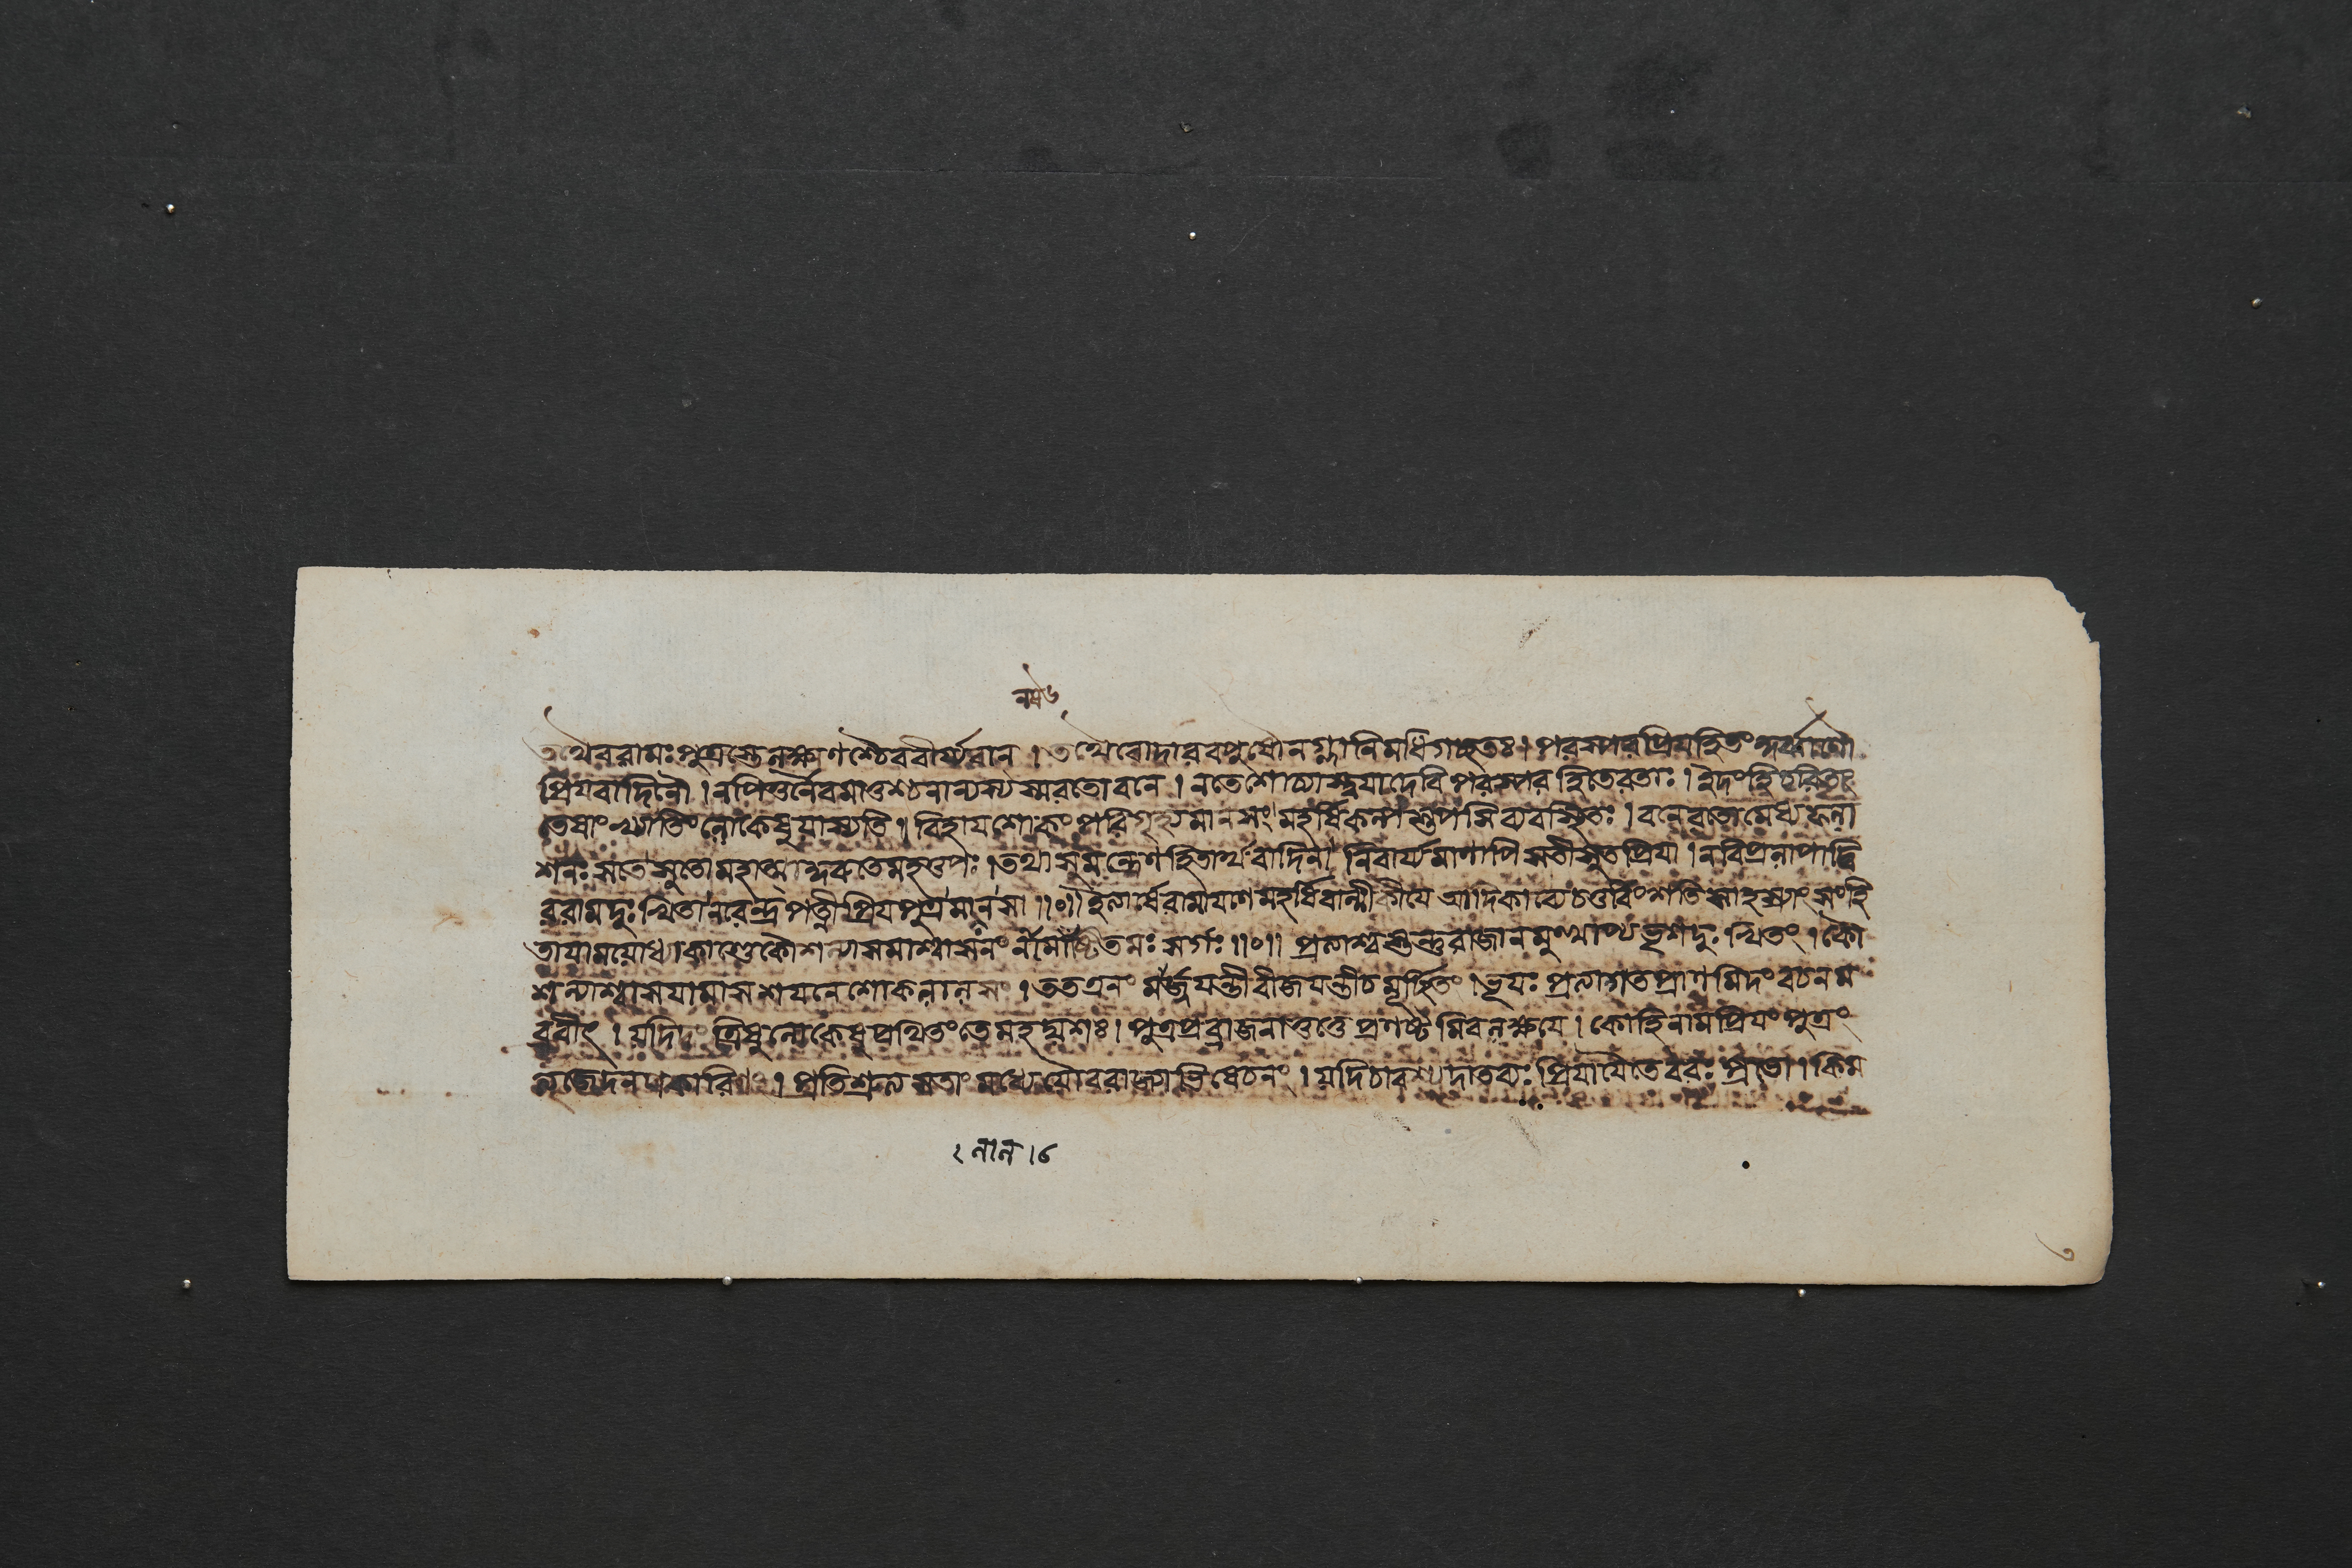 তথৈবরামঃপুত্রস্তেলক্ষ্মণশ্চৈববীর্য্যবান । তথৈবোদারবপুষৌনগ্লানিমধিগচ্ছতঃ । পরস্পরপ্রিয়হিতং
প্রিয়বাদিনৌ । নপিতুর্নৈবমাতুশ্চনান্যস্যস্মরতোবনে । নতেশোচ্যাস্ত্বয়াদেবি পরস্পর হিতেরতাঃ । ইদংহিচরিতং
তেষাংখ্যাতিংলোকেষুযাস্যতি । বিহায়শোকংপরিগৃহ্যমানসং মহর্ষিকল্পস্তপসি ব্যবস্থিতঃ । বনেরতো
শনঃ সতে সুতো তথা সুমন্ত্রেণহিতার্থবাদিনা নিবার্য্যমাণাপি সতীসুতপ্রিয়া । নবিপ্রলাপাদ্বি
ররামদুঃখিতা নরেন্দ্রপত্নীপ্রিয়পুত্রমানসা ॥০॥ ইত্যার্ষেরামায়ণেমহর্ষিবাল্মীকীয়ে আদিকাব্যে চতুর্বিংশতি সাহস্র্যাং সংহি
তায়ামযোধ্যাকাণ্ডেকৌশল্যাসমাশ্বাসনং সর্গঃ ॥০॥ প্রত্যাশ্বস্তন্তুরাজান ভৃশদুঃখিতং । কৌ
শল্যাশ্বাসয়ামাস শয়নেশোকলালসং । তত এনং বীজয়ন্তীচমূর্চ্ছিতং । ভূয়ঃ প্রত্যাগতপ্রাণমিদং বচনম
ব্রবীৎ । যদিদং ত্রিষুলোকেষুপ্রথিতংতেমহদ্যশঃ । পুত্রপ্রব্রাজনাত্তত্তে প্রণষ্টমিবলক্ষয়ে । কোহিনামপ্রিয়ংপুত্রং
ত্যজেদনপকারিণং । প্রতিশ্রুত্য সতাং মধ্যে যৌবরাজ্যাভিষেচনং । যদিচাবশ্যদাতব্যঃ প্রিয়ায়ৈতেবরঃ । কিম